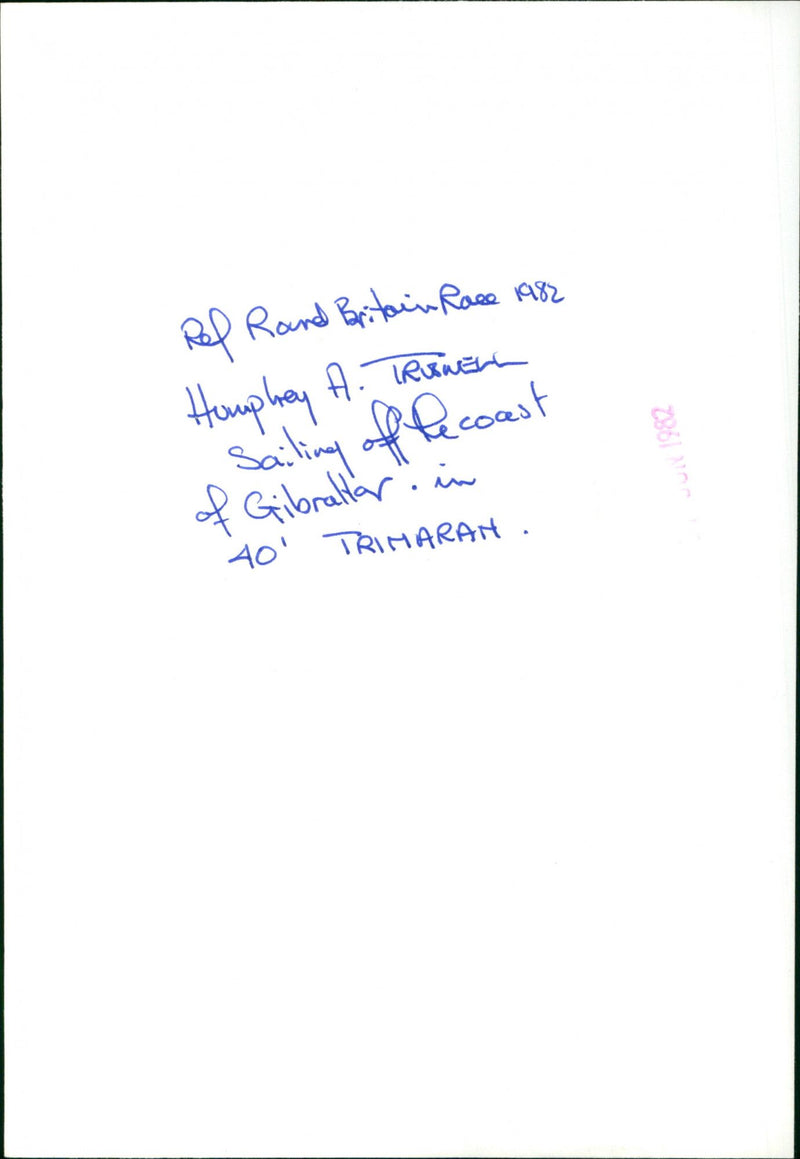 Ref Round Britain Race 1982
Humphrey A. TRUSWELL
Sailing off the coast
of Gibraltar. in
40' TRIMARAN.
1982